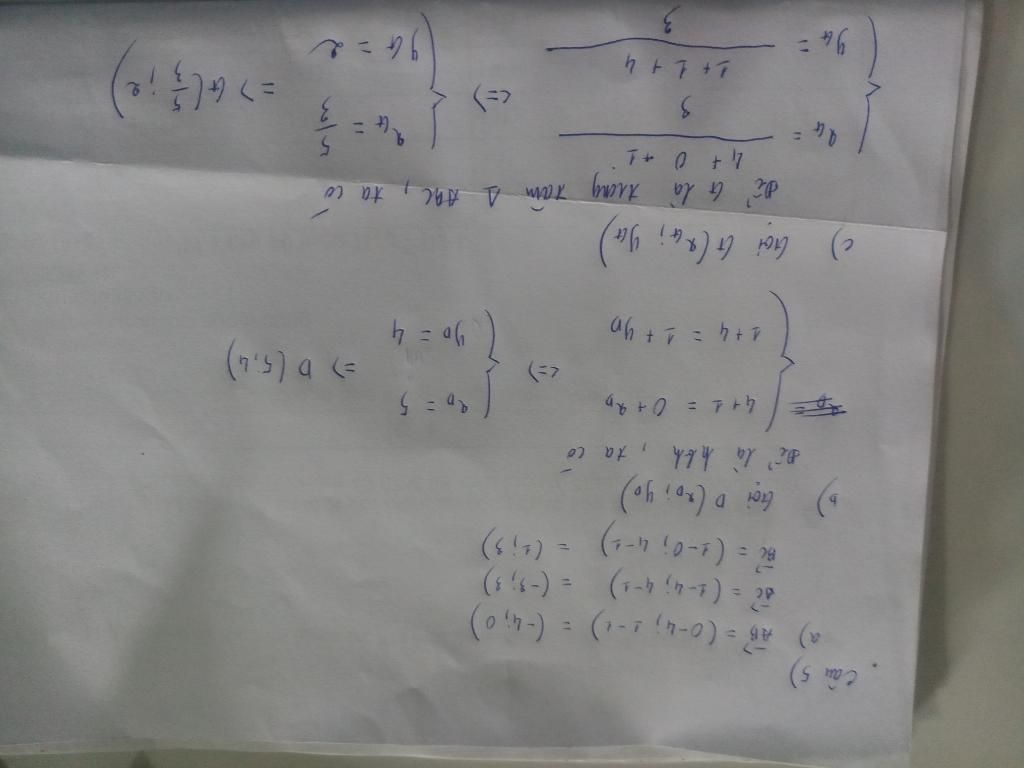 Câu 5)
a) AB = (0-4; 1-1) = (-4; 0)
AC = (1-4; 4-1) = (-3; 3)
BC = (1-0; 4-1) = (1; 3)
b) Gọi D (xD; yD)
Để là hbh, ta có
{ 4+1 = 0+xD
1+4 = 1+yD <=> { xD = 5
yD = 4 => D (5; 4)
c) Gọi G (xG; yG)
Để G là trọng tâm Δ ABC, ta có
{ xG = (4+0+1)/3
yG = (1+1+4)/3 <=> { xG = 5/3
yG = 2 => G (5/3; 2)